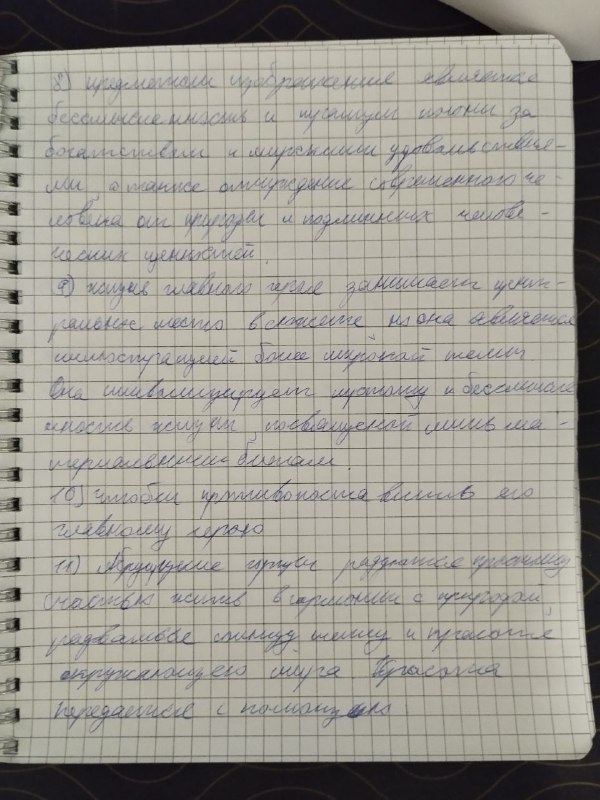 8) предметом изображения является
бессмысленность и пустоты погони за
богатством и мирскими удовольствия-
ми, а также отчуждение современного че-
ловека от природы и подлинных челове-
ческих ценностей.
9) жизнь главного героя занимает цент-
ральное место в сюжете но она является
иллюстрацией более широкой темы
Она символизирует пустоту и бессмысле
нность жизни, посвященой лишь ма-
териальным благам.
10) чтобы противопоставить его
главному герою
11) Абруццкие горцы простому
счастью жить в гармонии с природой,
солнцу и
окружающего мира. Красота
передается с помощью